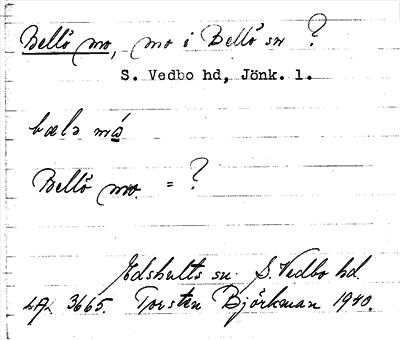 Bellö mo, mo i Bellö sn ?
S. Vedbo hd, Jönk. l.
bælə må
Bellö mo. = ?
Edshults sn. S. Vedbo hd.
LAL 3665. Torsten Björkman 1940.